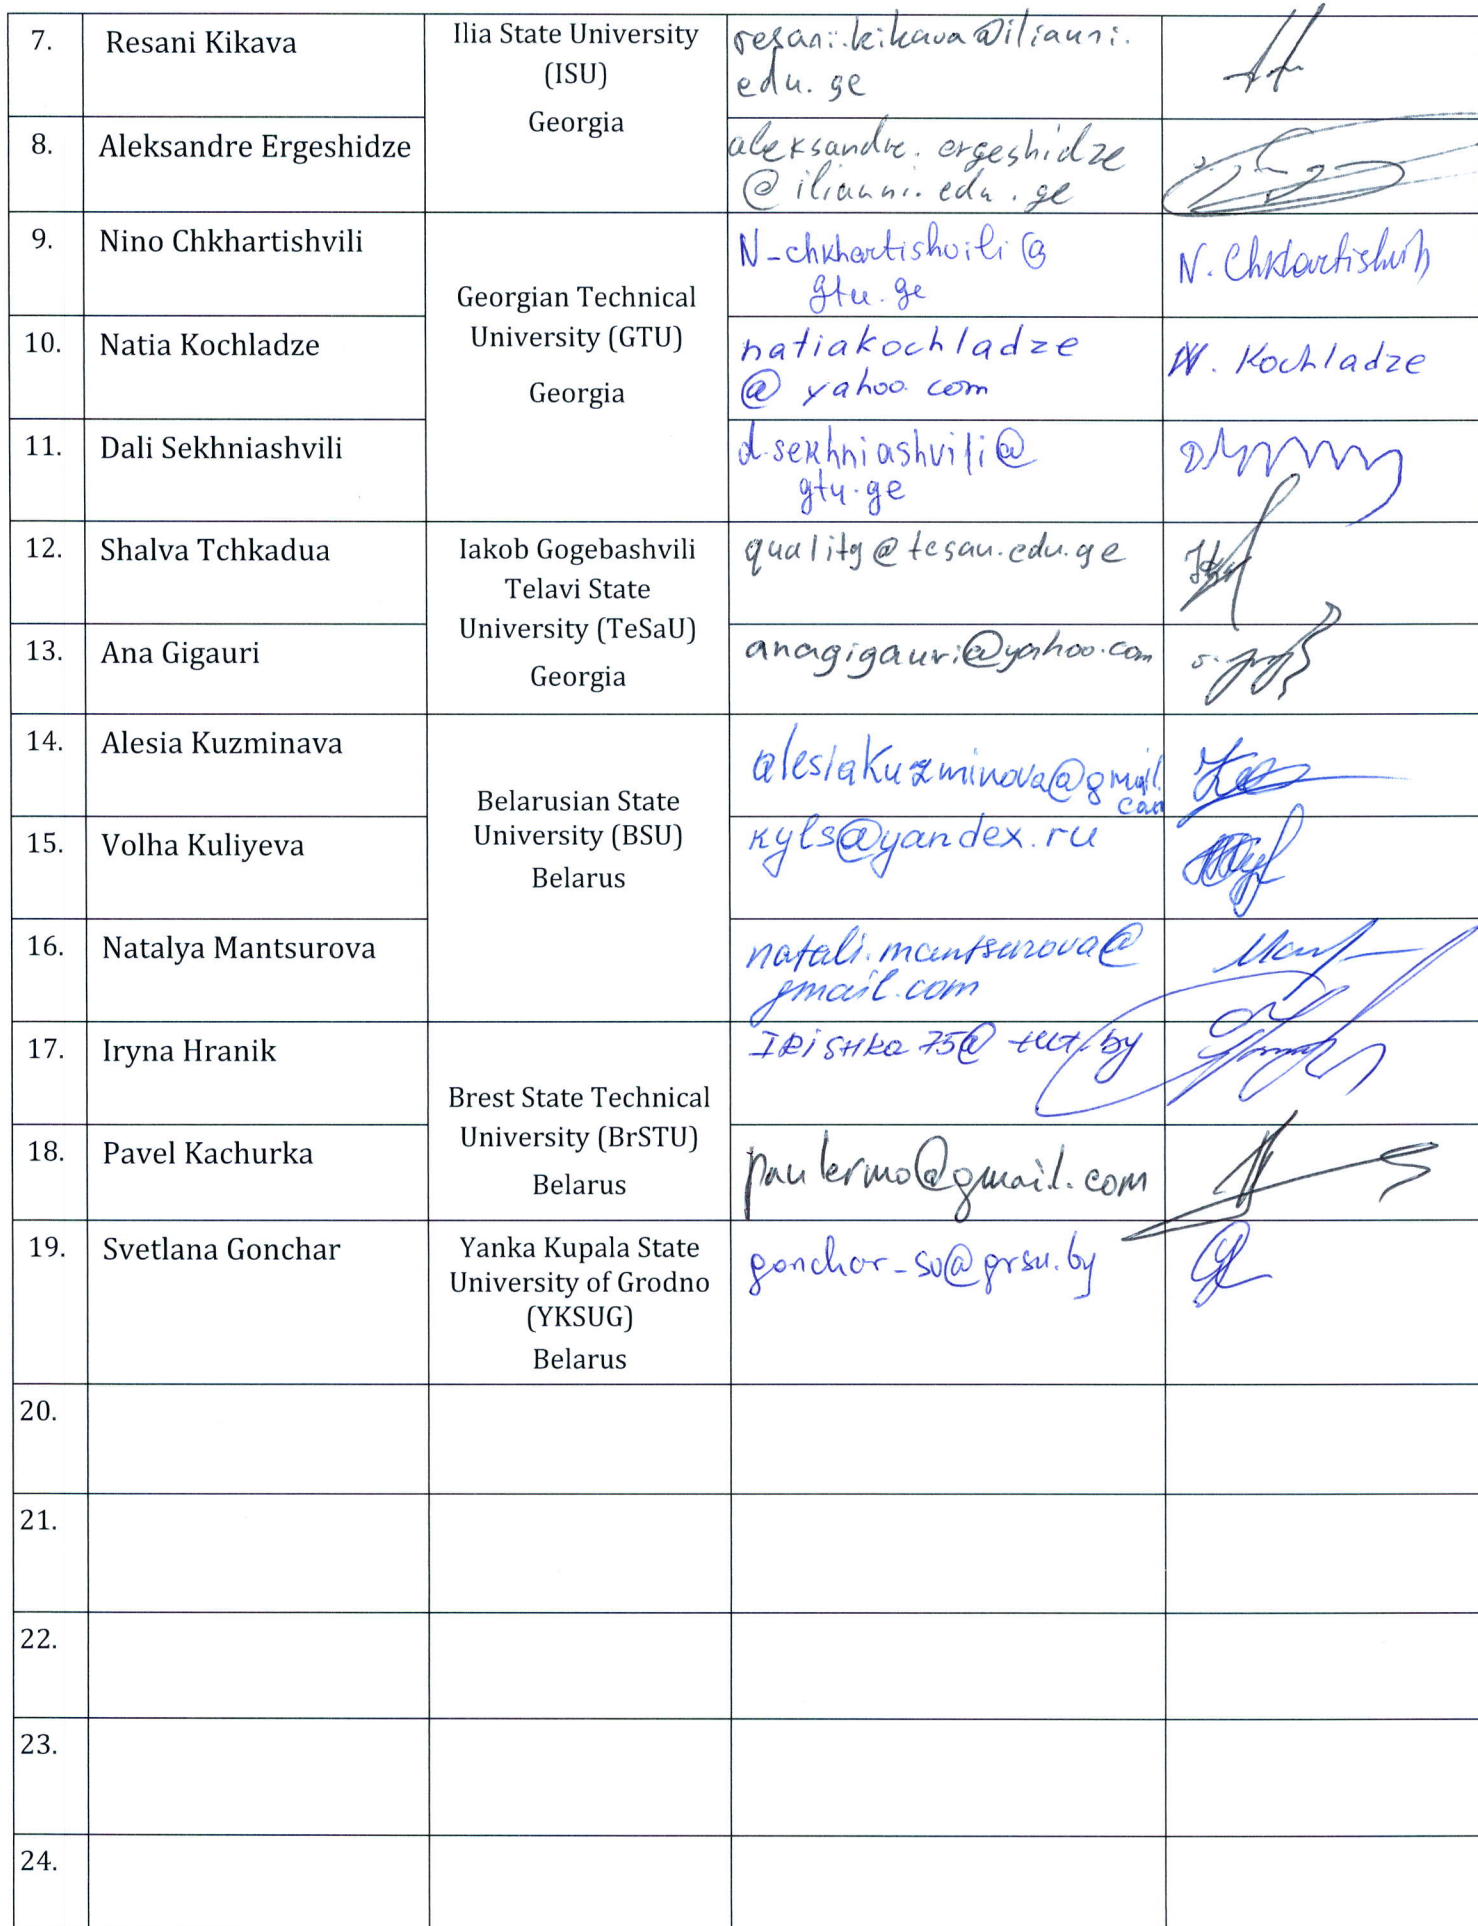 7.
Resani Kikava
Ilia State University
(ISU)
Georgia
resani.kikava@iliauni.
edu.ge
8.
Aleksandre Ergeshidze
aleksandre.ergeshidze
@iliauni.edu.ge
9.
Nino Chkhartishvili
Georgian Technical
University (GTU)
Georgia
N-chkhartishvili@
gtu.ge
N. Chkhartishvili
10.
Natia Kochladze
natiakochladze
@yahoo.com
N. Kochladze
11.
Dali Sekhniashvili
d.sekhniashvili@
gtu.ge
12.
Shalva Tchkadua
Iakob Gogebashvili
Telavi State
University (TeSaU)
Georgia
quality@tesau.edu.ge
13.
Ana Gigauri
anagigauri@yahoo.com
14.
Alesia Kuzminava
Belarusian State
University (BSU)
Belarus
alesiakuzminova@gmail.
com
15.
Volha Kuliyeva
kyls@yandex.ru
16.
Natalya Mantsurova
natali.mantsurova@
gmail.com
17.
Iryna Hranik
Brest State Technical
University (BrSTU)
Belarus
IRiSHka75@tut.by
18.
Pavel Kachurka
paulermo@gmail.com
19.
Svetlana Gonchar
Yanka Kupala State
University of Grodno
(YKSUG)
Belarus
gonchar-sv@grsu.by
20.
21.
22.
23.
24.